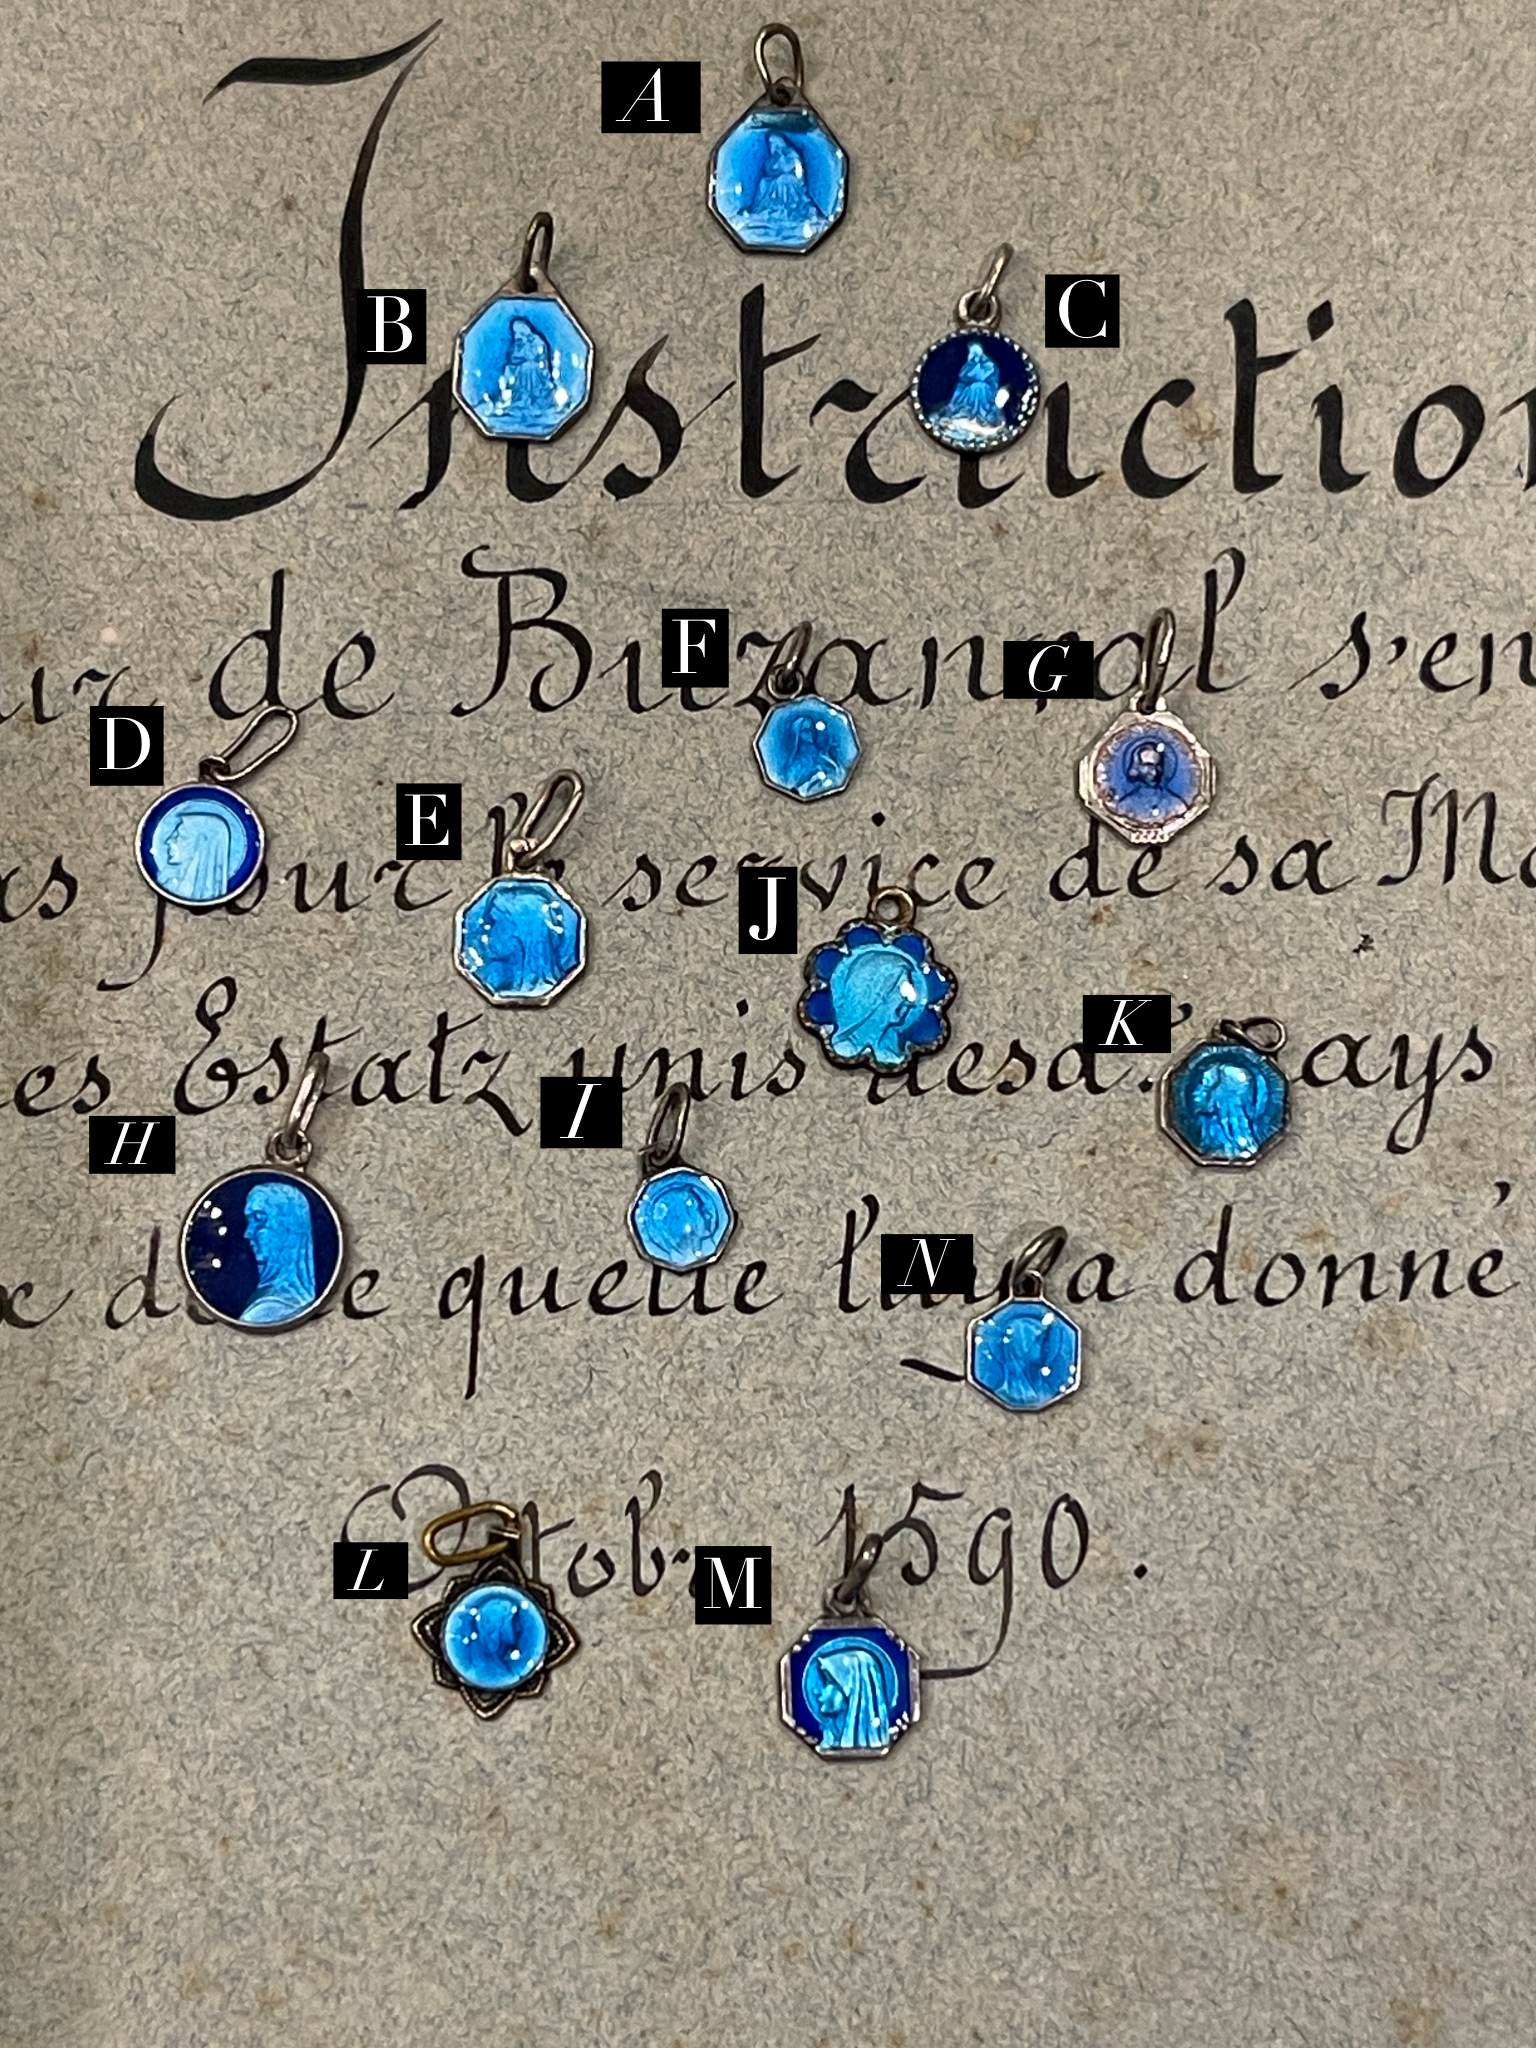 A
B
C
Instruction
F
G
ur de Buzanval s'en
D
E
as pour le service de sa Ma
J
K
es Estatz unis desd. pays
H
I
N
quelle l'uy a donné
L
M
Octobr 1590.